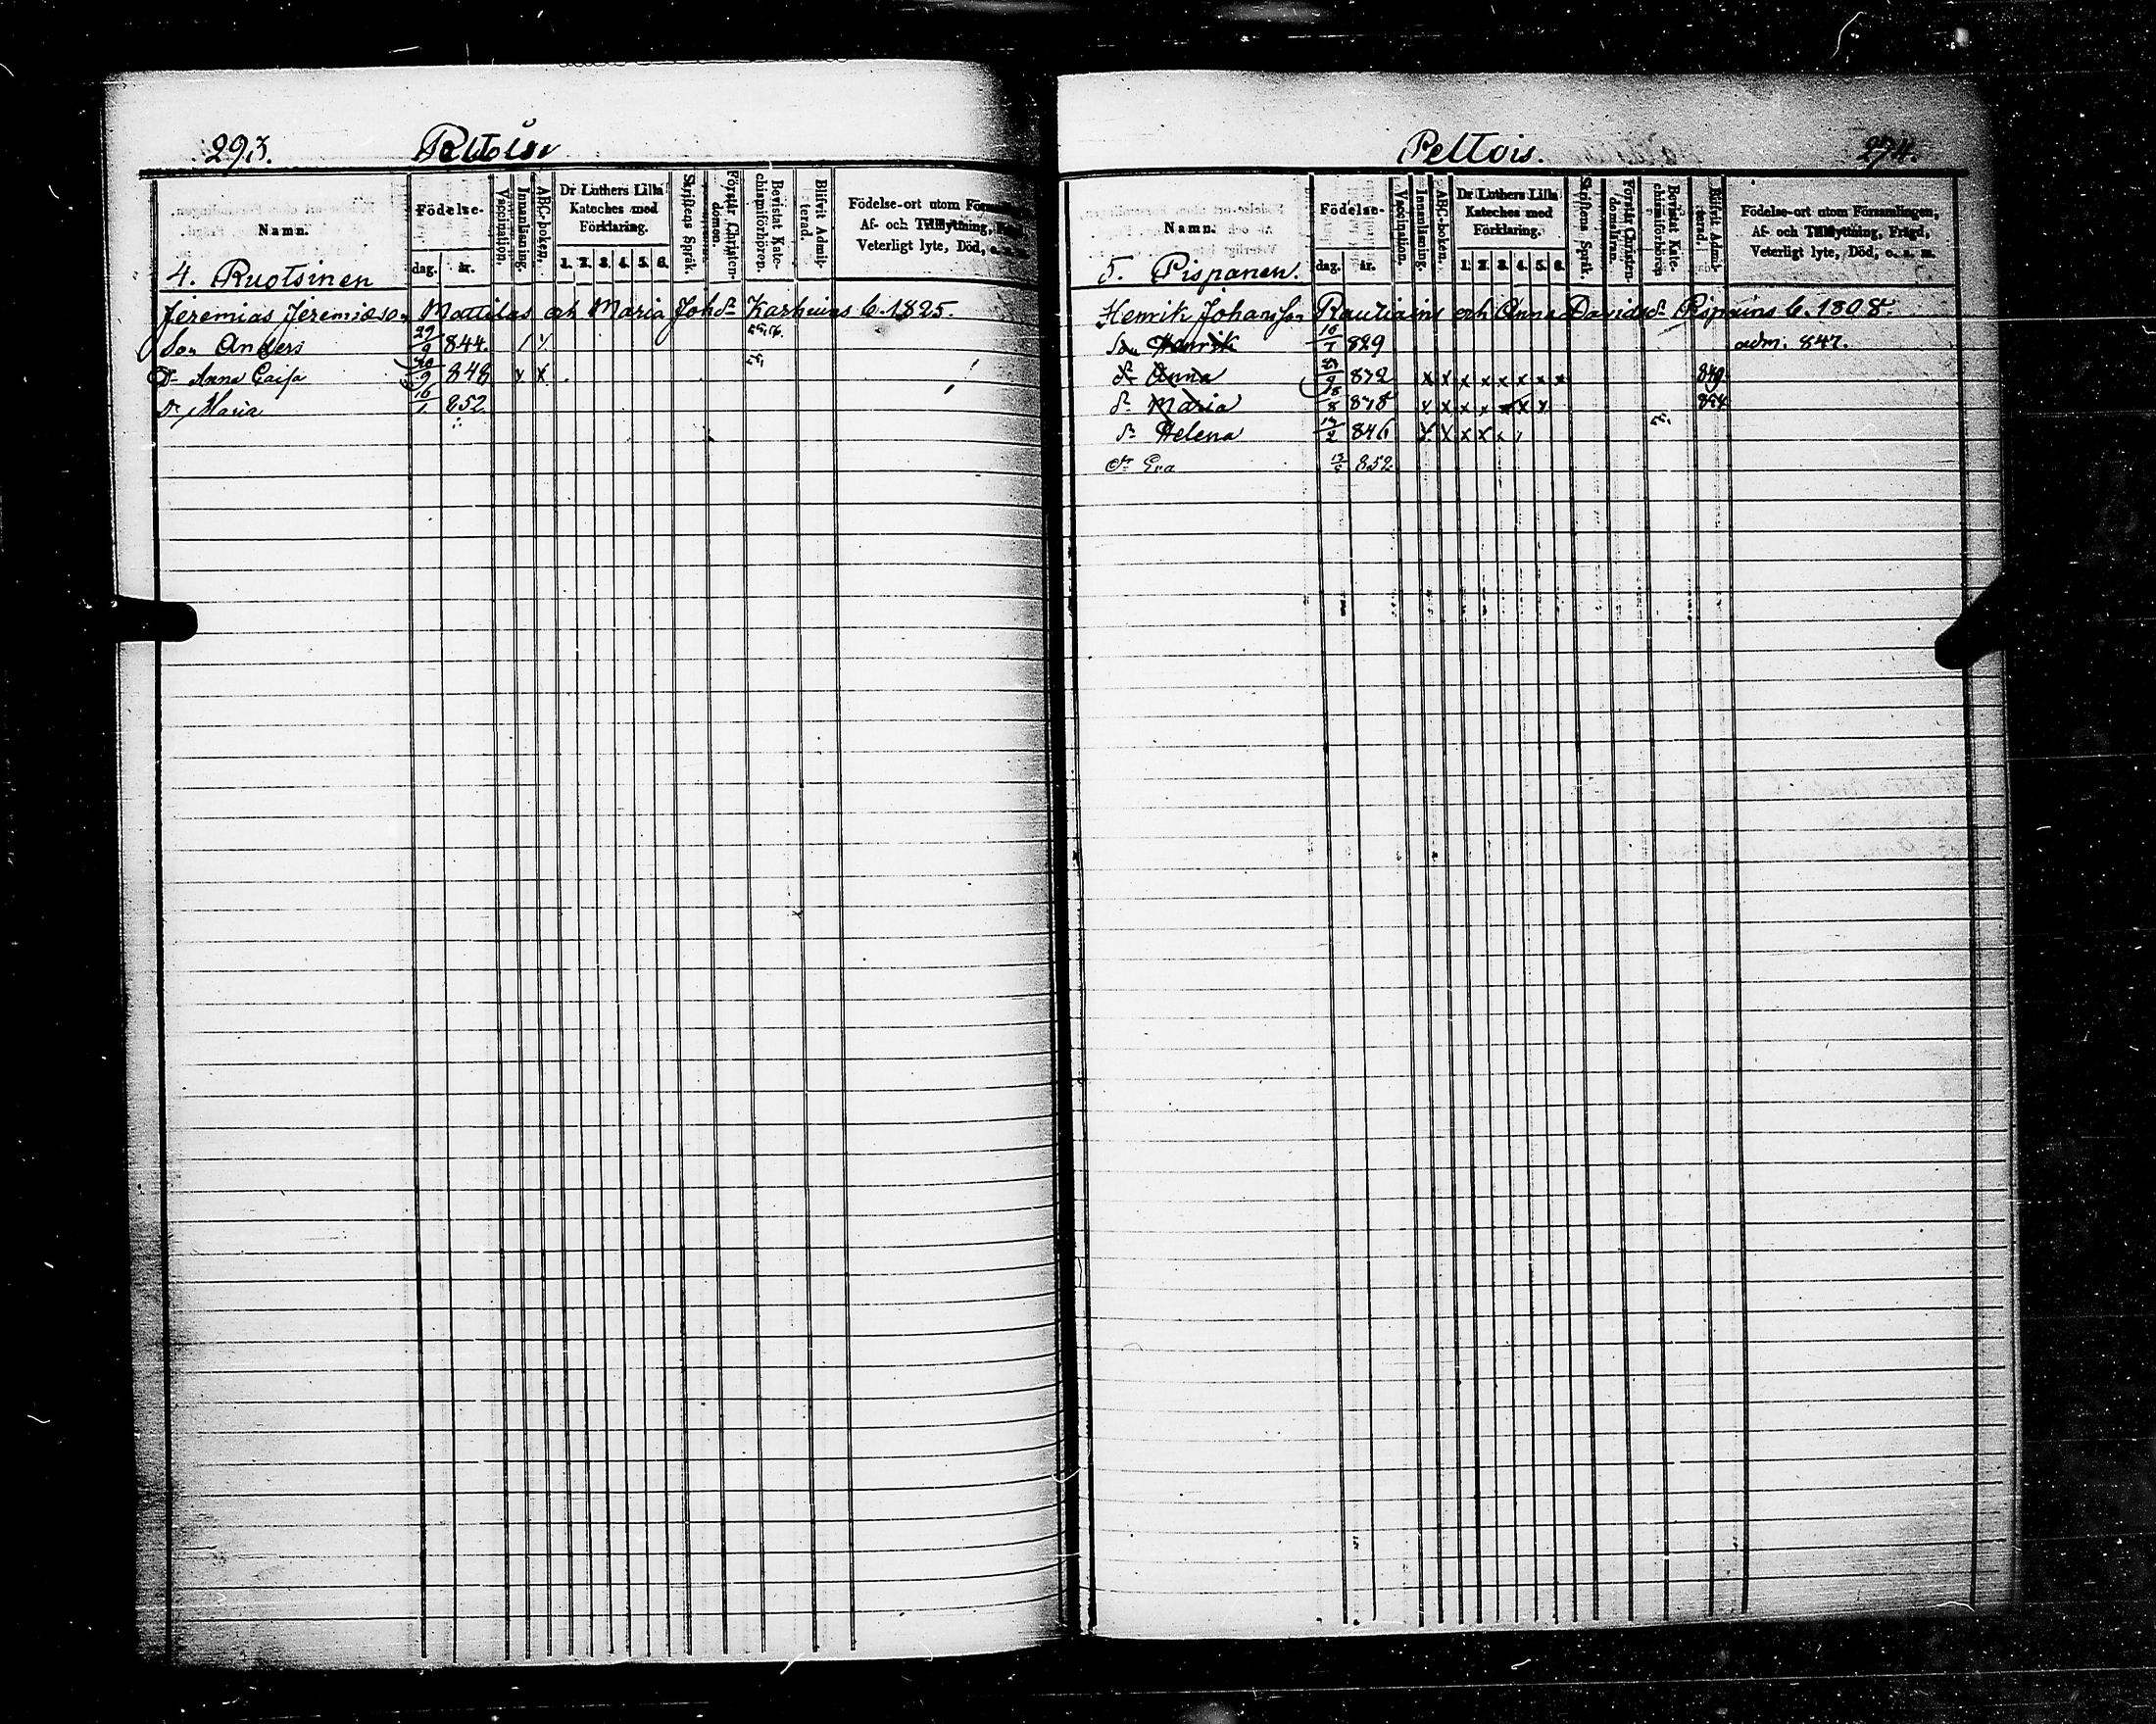 293. Peltois
Namn. Födelse- dag. år. Vaccination. Innanläsning. ABC-boken. Dr Luthers Lilla Kateches med Förklaring. 1. 2. 3. 4. 5. 6. Skriftens Språk. Förstår Christendomen. Bevistat Katechismiförhören. Blifvit Admitterad. Födelse-ort utom
Af- och Tillflyttning,
Veterligt lyte, Död, o. s. m.
4. Ruotsinen
Jeremias Jeremiæson Mattilas och Maria Johdr Karhuins C. 1825.
Son Anders 29/9 844. / x 55, 56.
Dr Anna Caisa 20/9 848 x x 55
Dr Maria 16/1 852
Peltois. 274.
Namn. Födelse- dag. år. Vaccination. Innanläsning. ABC-boken. Dr Luthers Lilla Kateches med Förklaring. 1. 2. 3. 4. 5. 6. Skriftens Språk. Förstår Christendomsläran. Bevistat Katechismiförhören Blifvit Admitterad. Födelse-ort utom Församlingen,
Af- och Tillflyttning, Frägd,
Veterligt lyte, Död, o. s. m.
5. Pispanen.
Henrik Johansson Rautiains och Anna Davidsdr Pispains C. 1808.
Son Henrik 829 adm. 847.
dr Anna 832 x x x x x x x x 849
dr Maria 18/8 838 x x x x x x x 854
dr Helena 846 x x x x x 55,
dr Eva 852